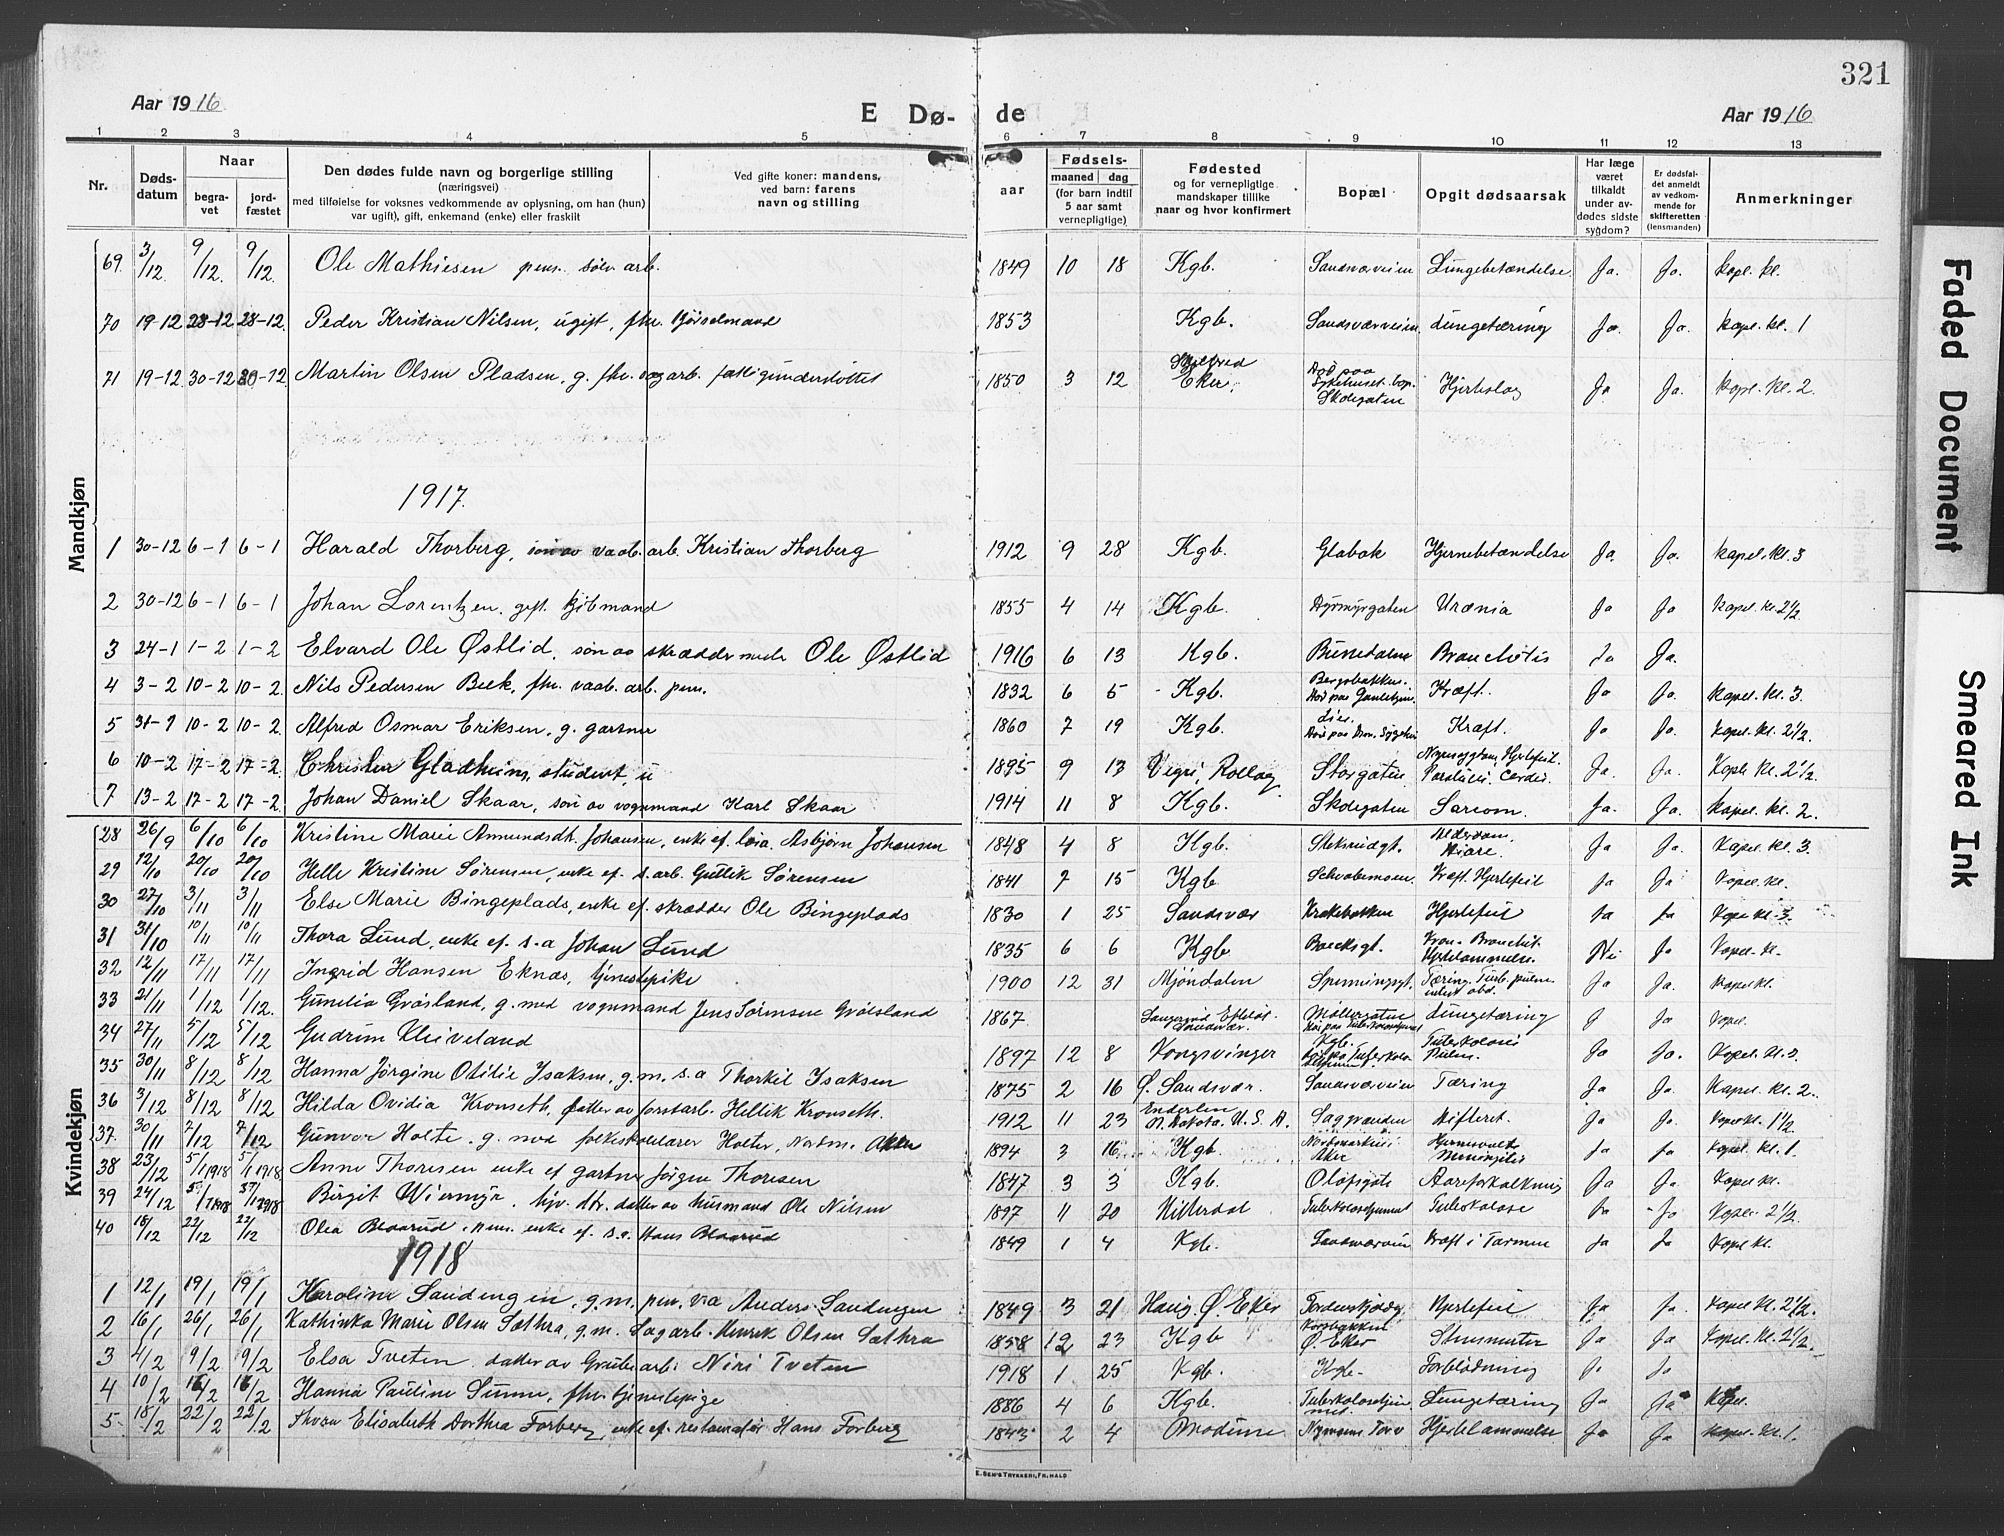 321
Aar 1916
E Dø-
de
Aar 1916
1 2 3 4 5 6 7 8 9 10 11 12 13
Nr.
Døds-
datum
Naar
begra-
vet
jord-
fæstet
Den dødes fulde navn og borgerlige stilling
(næringsvei)
med tilføielse for voksnes vedkommende av oplysning, om han (hun)
var ugift), gift, enkemand (enke) eller fraskilt
Ved gifte koner: mandens,
ved barn: farens
navn og stilling
aar
Fødsels-
maaned dag
(for barn indtil
5 aar samt
vernepligtige)
Fødested
og for vernepligtige
mandskaper tillike
naar og hvor konfirmert
Bopæl
Opgit dødsaarsak
Har læge
været
tilkaldt
under av-
dødes sidste
sygdom?
Er dødsfal-
det anmeldt
av vedkom-
mende for
skifteretten
(lensmanden)
Anmerkninger
Mandkjøn
69. 3/12 9/12. 9/12. Ole Mathiesen pens. sølv. arb. 1849 10 18 Kgb. Sandsværveien Lungebetændelse Ja. Ja. kapel. kl.
70 19-12 28-12 28-12. Peder Kristian Nilsen, ugift, fhv. kjørselmand 1853 Kgb. Sandsværveien Lungetæring Ja. Ja. kapel. kl. 1
71 19-12 30-12 30-12 Martin Olsen Pladsen, g. fhv. arb. fattigunderstøttet 1850 3 12 Eker. Død paa Sykehuset. bop. Skolegaten Hjerteslag Ja Ja. kapel. kl. 2.
1917.
1 30-12 6-1 6-1 Harald Thorberg, søn av vaab. arb. Kristian Thorberg 1912 9 28 Kgb. Glabak Hjernebetændelse Ja. Ja. kapel. kl. 3
2 30-12 6-1 6-1 Johan Lorentzen, gift. kjøbmand 1855 4 14 Kgb. Hyrmyrgaten Urænia Ja Ja kapel. kl. 2 1/2.
3 24-1 1-2 1-2 Elvard Ole Østlid, søn av skræddermester Ole Østlid 1916 6 13 Kgb. Bronchitis Ja Ja.
4 3-2 10-2 10-2. Nils Pedersen Beck, fhv. vaab. arb. pens. 1832 6 5 Kgb. Bergsbakken. Død paa Gamlehjem Kræft. Ja Ja kapel. kl. 3.
5 31-1 10-2 10-2. Alfred Osmar Eriksen, g. gartner 1860 7 19 Kgb. Lier. Kræft. Ja Ja. kapel. kl. 2 1/2.
6 10-2 17-2 17-2. Christen Gladheim, student, u 1895 9 13 Vegli, Rollag Storgaten Nyresygdom, Hjertefeil. Ja. Ja. Kapel. kl. 2 1/2.
7 13-2 17-2 17-2. Johan Daniel Skaar, søn av vognmand Karl Skaar 1914 11 8 Kgb. Skolegaten Sarcom. Ja. Ja. kapel. kl. 2.
Kvindekjøn
28 26/9 6/10 6/10 Kristine Marie Amundsdt. Johansen, enke ef. Asbjørn Johansen 1848 4 8 Kgb. Alderdom. Ja Ja. Kapel. kl. 3.
29 12/10 20/10 20/10 Helle Kristine Sørensen, enke ef. s. arb. Gullik Sørensen 1841 7 15 Kgb Kræft. Hjertefeil Ja Ja Kapel. kl.
30 27/10 3/11 3/11 Else Marie Bingeplads, enke ef. skrædder Ole Bingeplads 1830 1 25 Sandsvær Krakebakken Hjertefeil Ja Ja kl. 3.
31 31/10 10/11 10/11 Thora Lund, enke ef. s-a Johan Lund 1835 6 6 Kgb Kron. Bronchit. Hjertelammelse. Nei Ja Kapel. kl.
32 12/11 17/11 17/11 Ingrid Hansen Eknæs, tjenestepike 1900 12 31 Mjøndalen Tæring Ja Ja. kapel kl.
33 21/11 1/12 1/12. Gunelia Grøsland, g. med vognmand Jens Sørensen Grøsland 1867 Møllergaten Lungetæring Ja Kapel.
34 27/11 5/12 5/12 Gudrun Kleiveland 1897 12 8 Kongsvinger Kgb. Tuberkolosi Ja Ja. Kapel. kl.
35 30/11 8/12 8/12 Hanna Jørgine Otilie Isaksen, g. m. s. a Thorkil Isaksen 1875 2 16 Ø. Sandsvær. Sandsværveien Tæring Ja Ja Kapel. kl. 2.
36 3/12 8/12 8/12 Hilda Ovidia Kronseth, datter av forstarb. Hellik Kronseth. 1912 11 23 Enderlin N. Dakota. U. S. A. Difteret. Ja Ja Kapel kl. 1 1/2
37. 30/11 7/12 7/12 Gunvor Holte, g. med folkeskolelærer Holter, Aker 1894 3 16 Kgb. Aker Meningitis Ja Ja Kapel. kl. 1.
38 23/12 5/1 1918 5/1 1918 Anne Thoresen enke ef gartner Jørgen Thoresen 1847 3 3 Kgb. Olafsgate Aareforkalkning Ja Ja. Kapel kl.
39 24/12 5/1 1918 5/1 1918 Birgit Wiermyr, datter av husmand Ole Nilsen 1897 11 20 Hitterdal Tuberkolosehjemmet Tuberkolose Ja Ja Kapel. 2 1/2.
40 18/12 22/12 22/12 Olea Blaarud, pens. enke ef. s. a. Hans Blaarud 1849 1 4 Kgb. Sandsværveien Kræft i Tarmen Ja Ja Kapel kl.
1918
1 12/1 19/1 19/1 Karoline Sandengen, g. m. pen. Anders Sandengen 1849 3 21 Haug, Ø. Eker Hjertefeil Ja Ja. Kapel kl. 2 1/2.
2 16/1 26/1 26/1 Kathinka Marie Olsen Sæthra, g. m. Sagarb. Henrik Olsen Sæthra 1858 12 23 Kgb Ø. Eker Ja Ja Kapel. kl. 2 1/2.
3 4/2 9/2 9/2 Elsa Tveten datter av Grubearb. Niri Tveten 1918 1 25 Kgb. Kgb. Forblødning Ja
4 10/2 16/2 16/2 Hanna Pauline Sunne, fhv. tjenestepige 1886 4 6 Kgb. Tuberkolosehjemmet. Lungetæring Ja Ja Kapel.
5 18/2 22/2 22/2 Thora Elisabeth Dorthea Forberg, enke ef. restauratør Hans Forberg 1843 2 4 Modum Nymoens Torv Hjertelammelse Ja Ja Kapel. kl. 1.
E. SEM'S TRYKKERI, FR.HALD
Faded Document
Smeared Ink